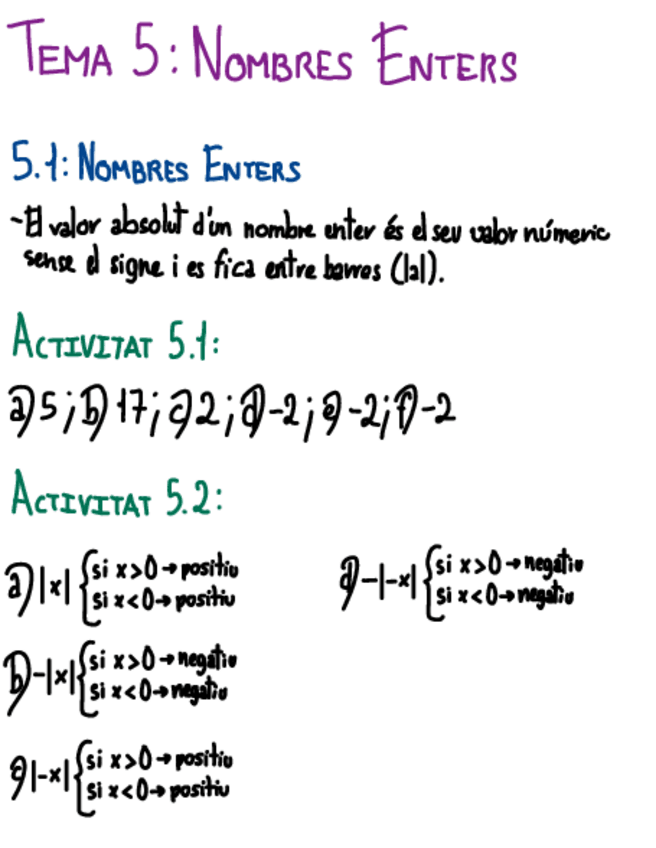 TEMA 5: NOMBRES ENTERS
5.1: NOMBRES ENTERS
-El valor absolut d'un nombre enter és el seu valor númeric
sense el signe i es fica entre barres (|a|).
ACTIVITAT 5.1:
a) 5; b) 17; c) 2; d) -2; e) -2; f) -2
ACTIVITAT 5.2:
a) |x| { si x>0 → positiu
si x<0 → positiu
b) -|x| { si x>0 → negatiu
si x<0 → negatiu
c) |-x| { si x>0 → positiu
si x<0 → positiu
d) -|-x| { si x>0 → negatiu
si x<0 → negatiu